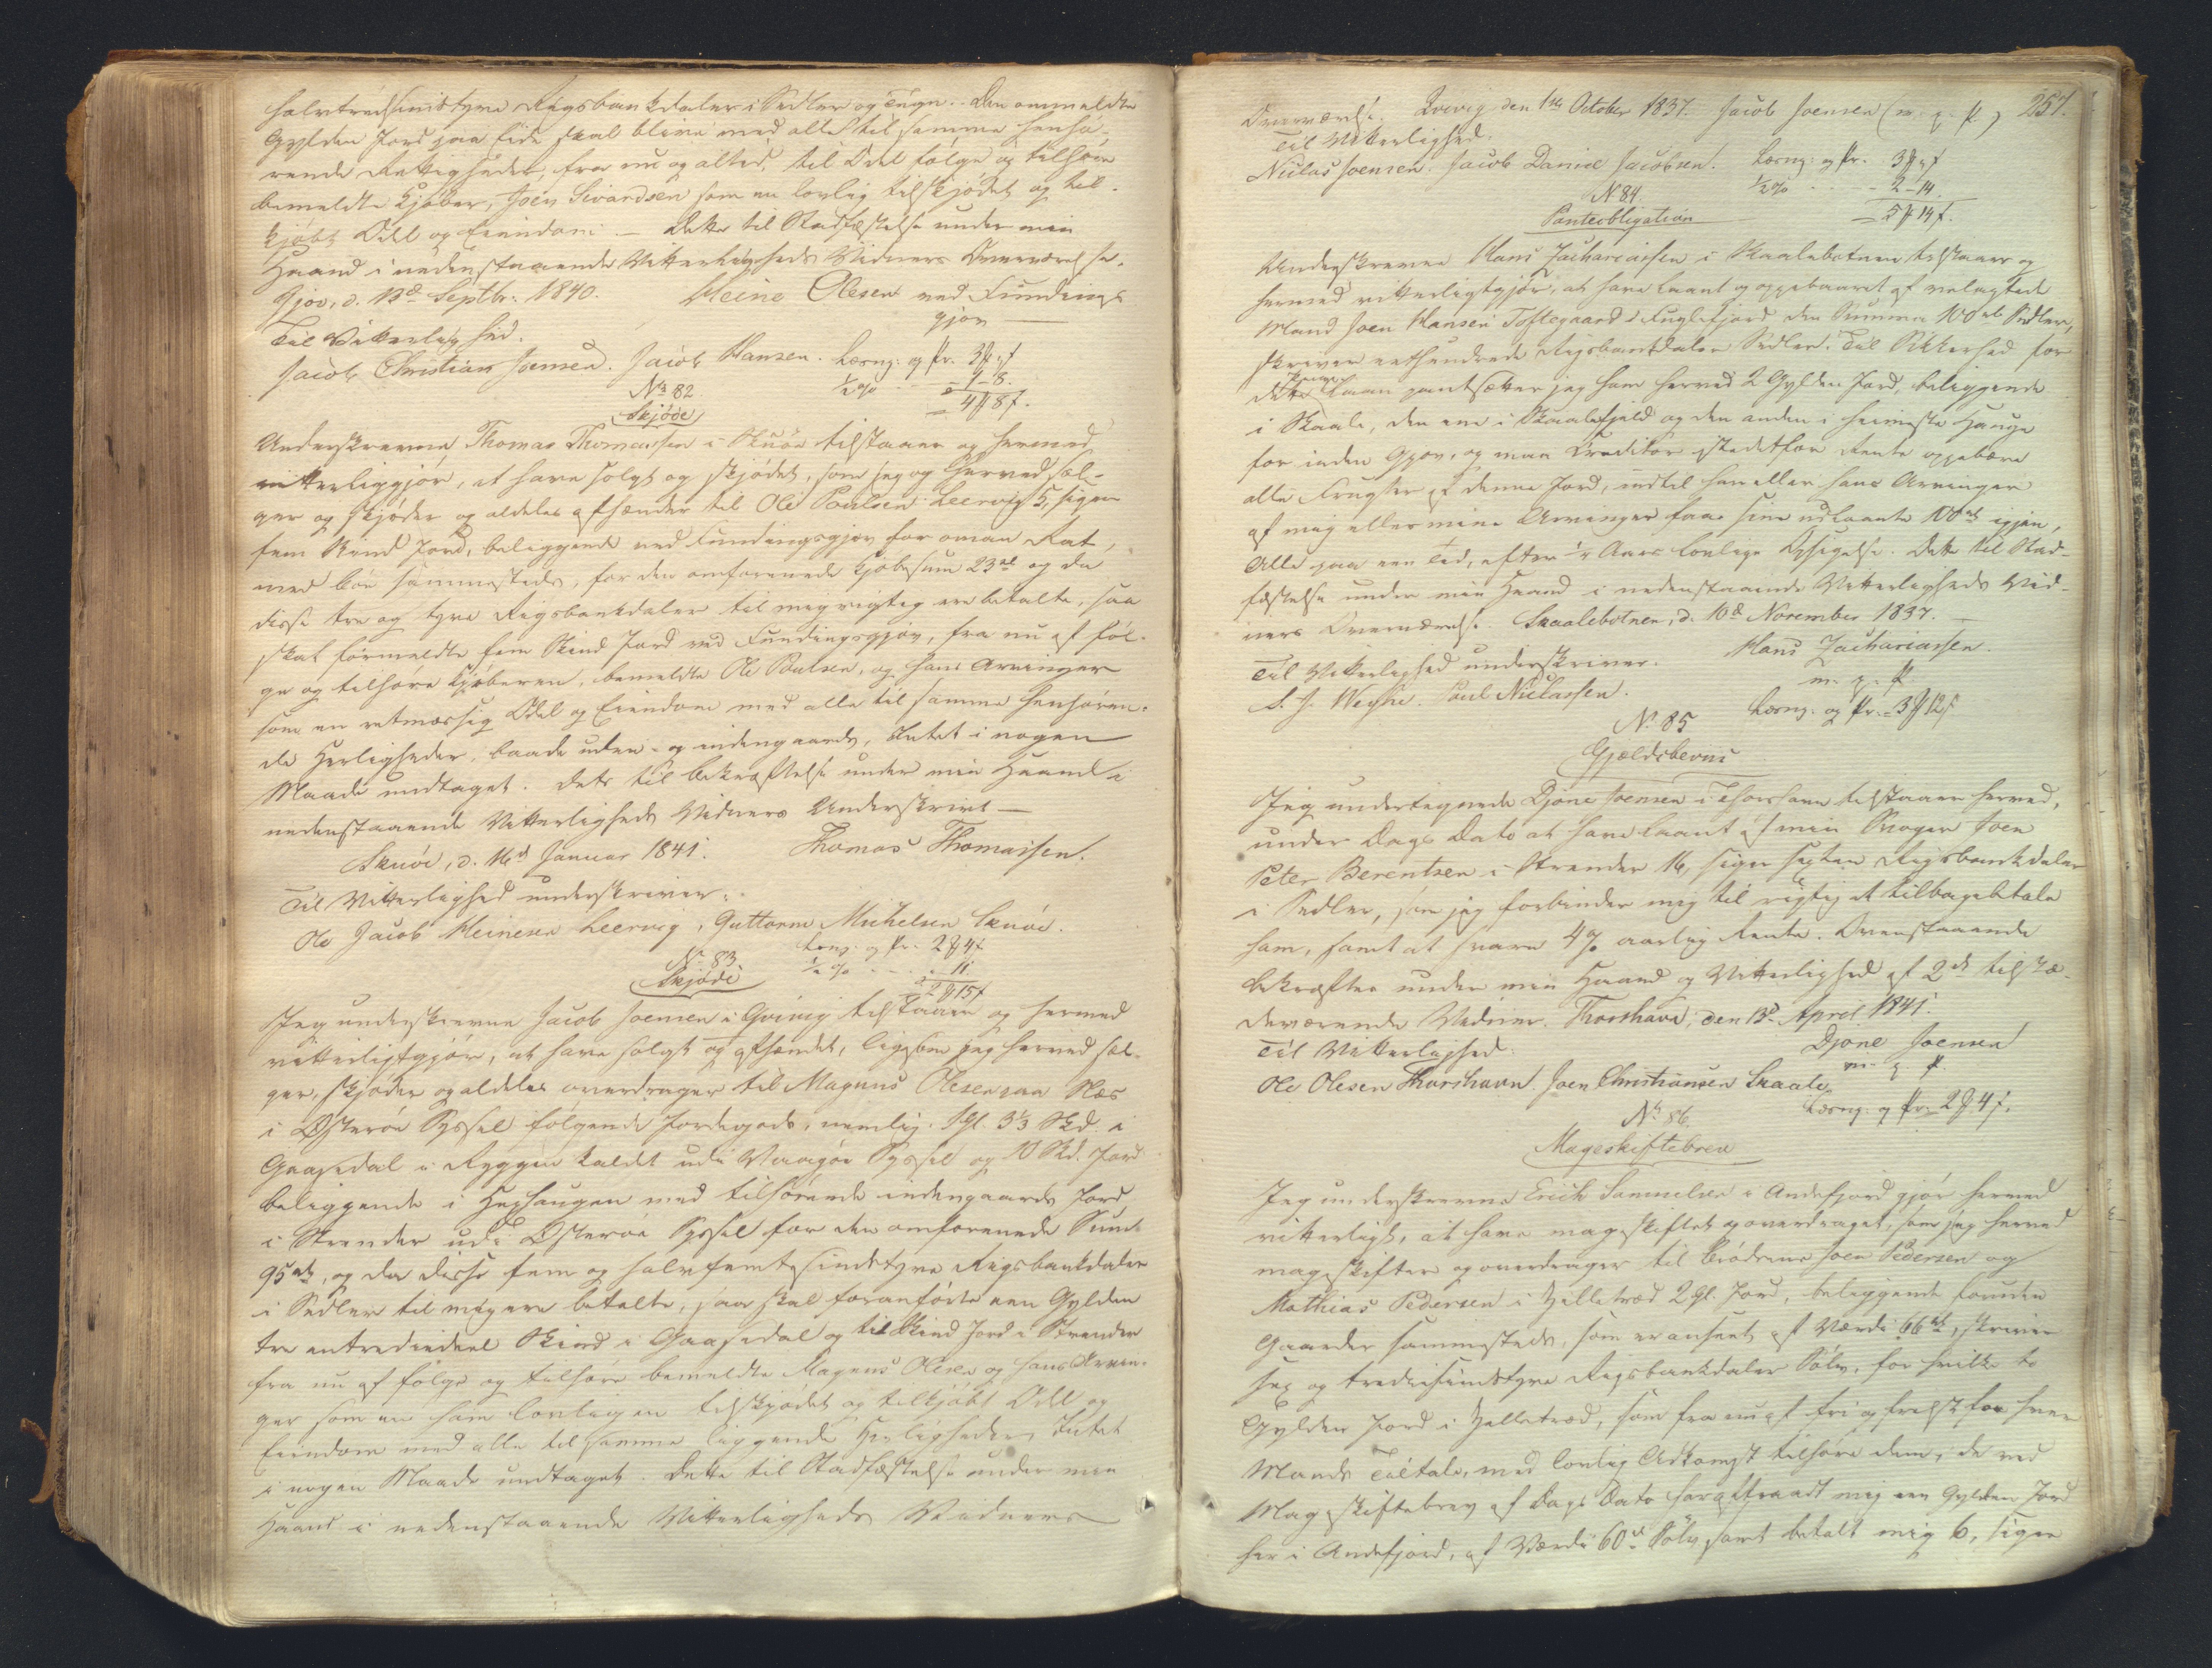 halvtredssindstyve Rigsbankdaler i Sedler og Tegn. Den ommeldte
Gylden Jord paa Eide skal blive med alle til samme henhø-
rende Rettigheder, fra nu og altid, til Odel følge og tilhøre
bemeldte Kjøber, Joen Sivardsen som en lovlig tilskjødet og til-
kjøbt Odel og Eiendom. – Dette til Stadfæstelse under min
Haand i nedenstaaende Vitterligheds Vidners Overværelse.
Gjov, d. 13d Septbr. 1840. Heine Olesen ved Fundings
gjov
Til Vitterlighed.
Jacob Christian Joensen. Jacob Hansen. Læsng: og Pr. 3
½ % 1-8.
No 82 4 8
Skjøde
Underskrevne Thomas Thomassen i Skuøe tilstaaer og hermed
vitterliggjør, at have solgt og skjødet, som jeg og herved sæl-
ger og skjøder og aldeles afhænder til Ole Poulsen Leervig 5, siger
fem Skind Jord, beliggende ved Fundingsgjov for oman Rat,
med Bøe sammesteds, for den omforenede Kjøbesum 23 rd og da
disse tre og tyve Rigsbankdaler til mig rigtig ere betalte, saa
skal førmeldte fem Skind Jord ved Fundingsgjov, fra nu af føl-
ge og tilhøre Kjøberen, bemeldte Ole Poulsen, og hans Arvinger
som en retmæssig Odel og Eiendom med alle til samme henhøren-
de Herligheder, baade uden- og indengaards, Intet i nogen
Maade undtaget. Dets til Bekræftelse under min Haand i
nedenstaaende Vitterligheds Vidners Underskrivt –
Skuøe, d. 16d Januar 1841. Thomas Thomassen.
Til Vitterlighed underskriver:
Ole Jacob Heinesen Leervig, Guttorm Michelsen Skuøe.
No 83. Læsng: og Pr. 2 4
Skjøde ½ % 11
2 15
Jeg underskrevne Jacob Joensen i Qvivig tilstaaer og hermed
vitterligtgjør, at have solgt og afhændet, ligesom jeg herved sæl-
ger, skjøder og aldeles overdrager til Magnus Olesen paa Næs
i Østerøe Syssel følgende Jordegods, nemlig: 1 Gl. 3⅓ Skd. i
Gaasedal i Ryggen kaldet udi Vaagøe Syssel og 10 Skd. Jord
beliggende i Heghaugen med tilhørende indengaards Jord
i Strender udi Østerøe Syssel for den omforenede Sum
95 rd, og da disse fem og halvfemtesindstyve Rigsbankdaler
i Sedler til mig ere betalte, saa skal foranførte een Gylden
tre entrediedeel Skind i Gaasedal og ti Skind Jord i Strender
fra nu af følge og tilhøre bemeldte Magnus Olesen og hans Arvin-
ger som en ham lovligen tilskjødet og tilkjøbt Odel og
Eiendom med alle til samme liggende Herligheder, Intet
i nogen Maade undtaget. Dette til Stadfæstelse under min
Haand i nedenstaaende Vitterligheds Vidners
Overværelse. Qvivig den 1ste October 1837. Jacob Joensen (m. p. P.) 257.
Til Vitterlighed.
Niclas Joensen. Jacob Daniel Jacobsen. Læsng: og Pr. 3
½ % 2-14.
N 84. 5 14
Panteobligation
Underskrevne Hans Zachariassen i Skaalebotnen tilstaaer og
hermed vitterligtgjør, at have laant og oppebaaret af velagtede
Mand Joen Hansen Toftegaard i Fuglefjord den Summa 100 rd Sedler,
skriver eethundrede Rigsbankdaler Sedler. Til Sikkerhed for
dette Laan pantsætter jeg ham herved 2 Gylden Jord, beliggende
i Skaale, den ene i Skaalefjeld og den anden i heimeste Hauge
for inden Gjov, og maa Creditor istedetfor Rente oppebære
alle Frugter af denne Jord, indtil han eller hans Arvinger
af mig eller mine Arvinger faae sine udlaante 100 rd igjen,
Alle paa een Tid, efter ½ Aars lovlige Opsigelse. Dette til Stad-
fæstelse under min Haand i nedenstaaende Vitterligheds Vid-
ners Overværelse. Skaalebotnen, d. 10d November 1837.
Til Vitterlighed underskriver. Hans Zachariassen
S. J. Weyhe. Poul Niclassen. m. p. P.
N. 85 Læsng: og Pr. 3 12
Gjældsbeviis
Jeg undertegnede Djone Joensen i Thorshavn tilstaaer herved,
under Dags Dato at have laant af min Svoger Joen
Peter Berentsen i Strender 16, siger sexten Rigsbankdaler
i Sedler, som jeg forbinder mig til rigtig at tilbagebetale
ham, samt at svare 4 % aarlig Rente. Ovenstaaende
bekræfter under min Haand og Vitterlighed af 2de tilstæ-
deværende Vidner. Thorshavn, den 13d April 1841.
Til Vitterlighed: Djone Joensen
Ole Olesen Thorshavn. Joen Christiansen Skaale. m. p. P.
No 86. Læsng: og Pr. 2 4
Mageskiftebrev
Jeg underskrevne Erich Samuelsen i Andefjord gjør hermed
vitterligt, at have mageskiftet og overdraget, som jeg herved
mageskifter og overdrager til Brødrene Joen Pedersen og
Mathias Pedersen i Helletræd 2 Gl. Jord, beliggende
Gaarder sammesteds, som er anseet af Værdi 66 rd, skriver
sex og tredsindstyve Rigsbankdaler Sølv, for hvilke to
Gylden Jord i Helletræd, som fra nu af fri og frelst for hver
Mands Tiltale, med lovlig Adkomst tilhøre dem, de ved
Mageskiftebrev af Dags Dato har afstaaet mig een Gylden Jord
her i Andefjord, af Værdi 60 rd Sølv, samt betalt mig 6, siger